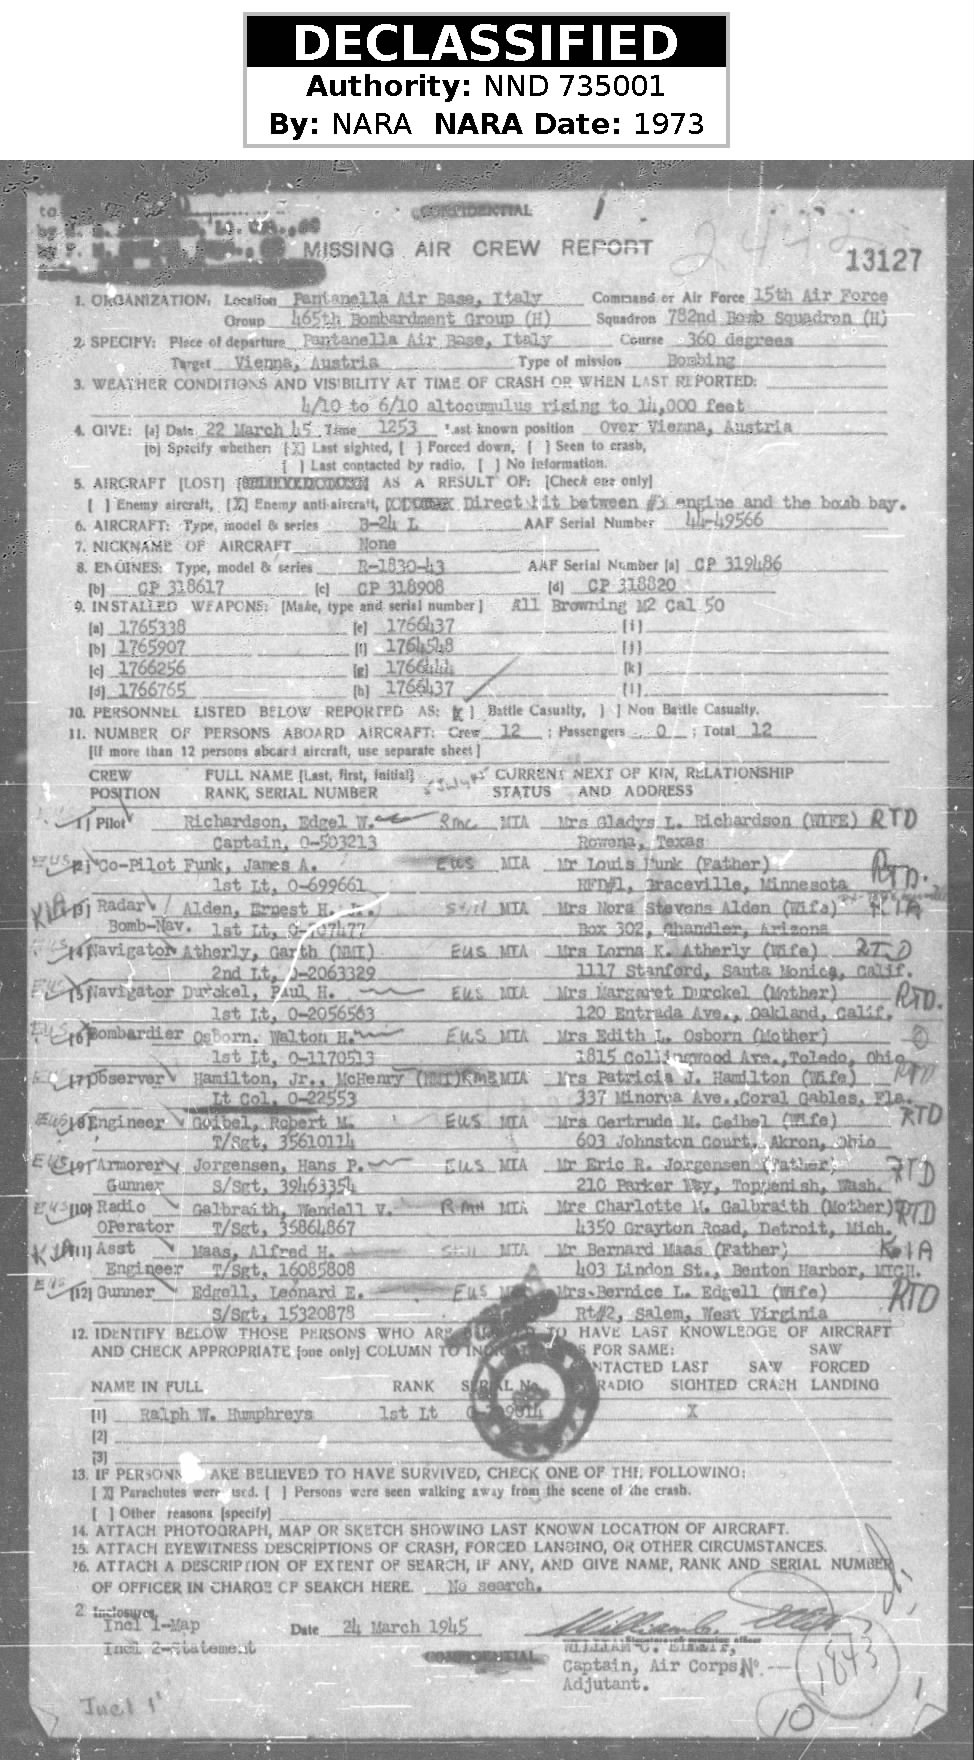 DECLASSIFIED
Authority: NND 735001
By: NARA NARA Date: 1973
CONFIDENTIAL
MISSING AIR CREW REPORT
13127
1. ORGANIZATION: Location Pantanella Air Base, Italy Command or Air Force 15th Air Force
Group 465th Bombardment Group (H) Squadron 782nd Bomb Squadron (H)
2. SPECIFY: Place of departure Pantanella Air Base, Italy Course 360 degrees
Target Vienna, Austria Type of mission Bombing
3. WEATHER CONDITIONS AND VISIBILITY AT TIME OF CRASH OR WHEN LAST REPORTED:
4/10 to 6/10 altocumulus rising to 14,000 feet
4. GIVE: [a] Date 22 March 45 Time 1253 Last known position Over Vienna, Austria
[b] Specify whether: [X] Last sighted, [ ] Forced down, [ ] Seen to crash,
[ ] Last contacted by radio, [ ] No Information.
5. AIRCRAFT [LOST] AS A RESULT OF: [Check one only]
[ ] Enemy aircraft, [X] Enemy anti-aircraft, Direct hit between #3 engine and the bomb bay.
6. AIRCRAFT: Type, model & series B-24 L AAF Serial Number 44-49566
7. NICKNAME OF AIRCRAFT None
8. ENGINES: Type, model & series R-1830-43 AAF Serial Number [a] CP 319486
[b] CP 318617 [c] CP 318908 [d] CP 318820
9. INSTALLED WEAPONS: [Make, type and serial number] All Browning M2 Cal 50
[a] 1765338 [e] 1766437 [i]
[b] 1765907 [f] 1764548 [j]
[c] 1766256 [g] 1766444 [k]
[d] 1766765 [h] 1766437 [l]
10. PERSONNEL LISTED BELOW REPORTED AS: [X] Battle Casualty, [ ] Non Battle Casualty.
11. NUMBER OF PERSONS ABOARD AIRCRAFT: Crew 12 ; Passengers 0 ; Total 12
[If more than 12 persons aboard aircraft, use separate sheet]
CREW FULL NAME [Last, first, initial] CURRENT NEXT OF KIN, RELATIONSHIP
POSITION RANK, SERIAL NUMBER STATUS AND ADDRESS
[1] Pilot Richardson, Edgel W. RMC MIA Mrs Gladys L. Richardson (WIFE) RTD
Captain, O-503213 Rowena, Texas
EUS [2] Co-Pilot Funk, James A. EUS MIA Mr Louis Funk (Father) RTD.
1st Lt, O-699661 RFD#1, Graceville, Minnesota
KIA [3] Radar Alden, Ernest H. Jr. Still MIA Mrs Nora Stevens Alden (Wife) KIA
Bomb-Nav. 1st Lt, Box 302, Chandler, Arizona
EUS [4] Navigator Atherly, Garth (NMI) EUS MIA Mrs Lorna K. Atherly (Wife) RTD
2nd Lt, O-2063329 1117 Stanford, Santa Monica, Calif.
EUS [5] Navigator Durckel, Paul H. EUS MIA Mrs Margaret Durckel (Mother) RTD.
1st Lt, O-2056563 120 Entrada Ave., Oakland, Calif.
EUS [6] Bombardier Osborn, Walton H. EUS MIA Mrs Edith L. Osborn (Mother)
1st Lt, O-1170513 1815 Collingwood Ave., Toledo, Ohio
EUS [7] Observer Hamilton, Jr., McHenry (NMI) RMC MIA Mrs Patricia J. Hamilton (Wife) RTD
Lt Col, O-22553 337 Minorca Ave., Coral Gables, Fla.
EUS [8] Engineer Goibel, Robert M. EUS MIA Mrs Gertrude M. Geibel (Wife) RTD
T/Sgt, 35610114 603 Johnston Court, Akron, Ohio
EUS [9] Armorer Jorgensen, Hans P. EUS MIA Mr Eric R. Jorgensen (Father) RTD
Gunner S/Sgt, 39463354 210 Parker Way, Toppenish, Wash.
EUS [10] Radio Galbraith, Wendell V. RMC MIA Mrs Charlotte M. Galbraith (Mother) RTD
OPerator T/Sgt, 35864867 4350 Grayton Road, Detroit, Mich.
KIA [11] Asst Maas, Alfred H. Still MIA Mr Bernard Maas (Father) KIA
Engineer T/Sgt, 16085808 403 Lindon St., Benton Harbor, MICH.
EUS [12] Gunner Edgell, Leonard E. EUS Mrs. Bernice L. Edgell (Wife) RTD
S/Sgt, 15320878 Rt#2, Salem, West Virginia
12. IDENTIFY BELOW THOSE PERSONS WHO ARE TO HAVE LAST KNOWLEDGE OF AIRCRAFT
AND CHECK APPROPRIATE [one only] COLUMN TO FOR SAME: SAW
LAST SAW FORCED
NAME IN FULL RANK SERIAL No. RADIO SIGHTED CRASH LANDING
[1] Ralph W. Humphreys 1st Lt X
[2]
[3]
13. IF PERSONNEL ARE BELIEVED TO HAVE SURVIVED, CHECK ONE OF THE FOLLOWING:
[X] Parachutes were used. [ ] Persons were seen walking away from the scene of the crash.
[ ] Other reasons [specify]
14. ATTACH PHOTOGRAPH, MAP OR SKETCH SHOWING LAST KNOWN LOCATION OF AIRCRAFT.
15. ATTACH EYEWITNESS DESCRIPTIONS OF CRASH, FORCED LANDING, OR OTHER CIRCUMSTANCES.
16. ATTACH A DESCRIPTION OF EXTENT OF SEARCH, IF ANY, AND GIVE NAME, RANK AND SERIAL NUMBER
OF OFFICER IN CHARGE OF SEARCH HERE. No search.
2 Inclosures
Incl 1-Map Date 24 March 1945
Incl 2-Statement
CONFIDENTIAL
Captain, Air Corps No
Adjutant.
1843
Incl 1
10